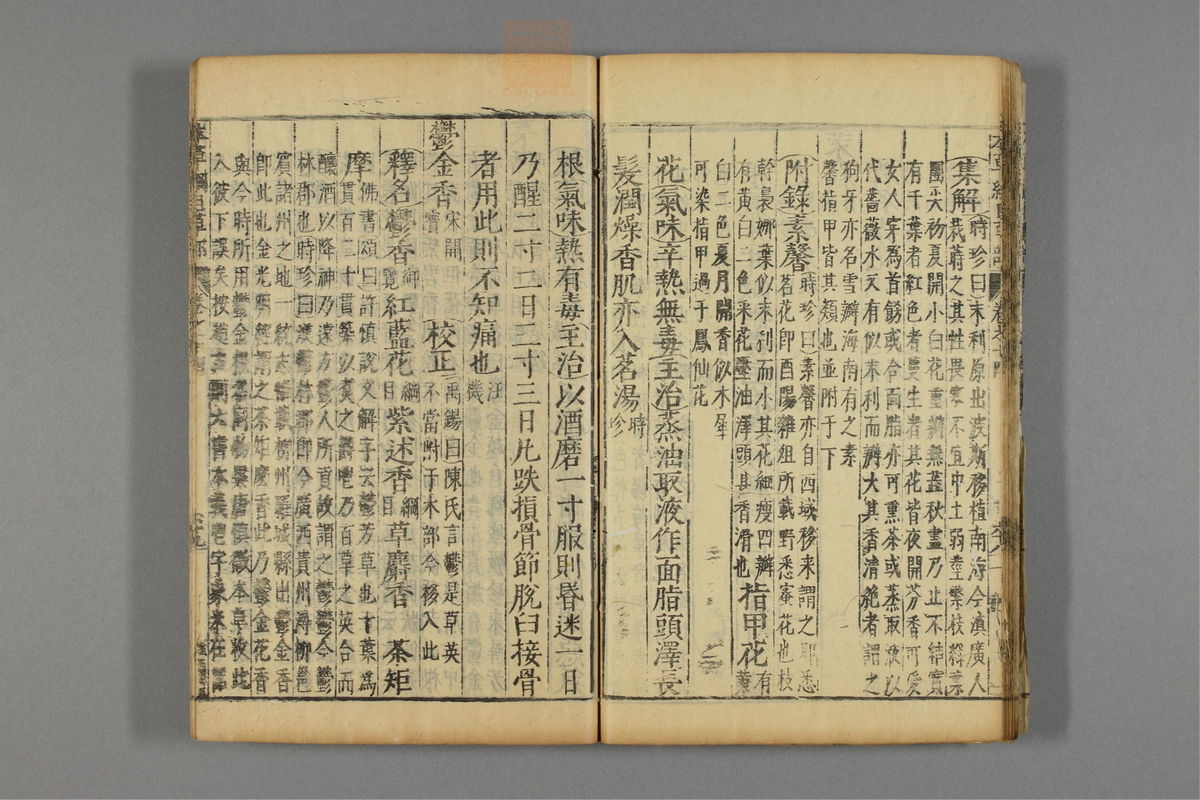 集解時珍曰末利原出波斯移植南海今滇廣人
栽蒔之其性畏寒不宜中土弱莖繁枝綠葉
團尖初夏開小白花重瓣無蕊秋盡乃止不結實
有千葉者紅色者蔓生者其花皆夜開芬香可愛
女人穿為首飾或合面脂亦可熏茶或蒸取液以
代薔薇水又有似末利而瓣大其香清絕者謂之
狗牙亦名雪瓣海南有之素
馨指甲皆其類也並附于下
附錄素馨時珍曰素馨亦自西域移來謂之耶悉
茗花卽酉陽雜俎所載野悉蜜花也枝
幹裊娜葉似末利而小其花細瘦四瓣
有黃白二色采花壓油澤頭甚香滑也指甲花有黃
白二色夏月開香似木犀
可染指甲過于鳳仙花
花氣味辛熱無毒主治蒸油取液作面脂頭澤長
髮潤燥香肌亦入茗湯時珍
根氣味熱有毒主治以酒磨一寸服則昏迷一日
乃醒二寸二日三寸三日凡跌損骨節脫臼接骨
者用此則不知痛也汪機
鬱金香宋開寶校正禹錫曰陳氏言鬱是草英
不當附于木部今移入此
釋名鬱香御覽紅藍花綱目紫述香綱目草麝香茶矩
摩佛書頌曰許慎說文解字云鬱芳草也十葉為
貫百二十貫築以煮之鬱鬯乃百草之英合而
釀酒以降神乃遠方鬱人所貢故謂之鬱鬱今鬱
林郡也時珍曰漢鬱林郡卽今廣西貴州潯柳邕
賓諸州之地一統志惟載柳州羅城縣出鬱金香
卽此也金光明經謂之茶矩麼香此乃鬱金花香
與今時所用鬱金根名同物異唐慎微本草收此
入彼下誤矣按趙古則六書本義鬯字象米在